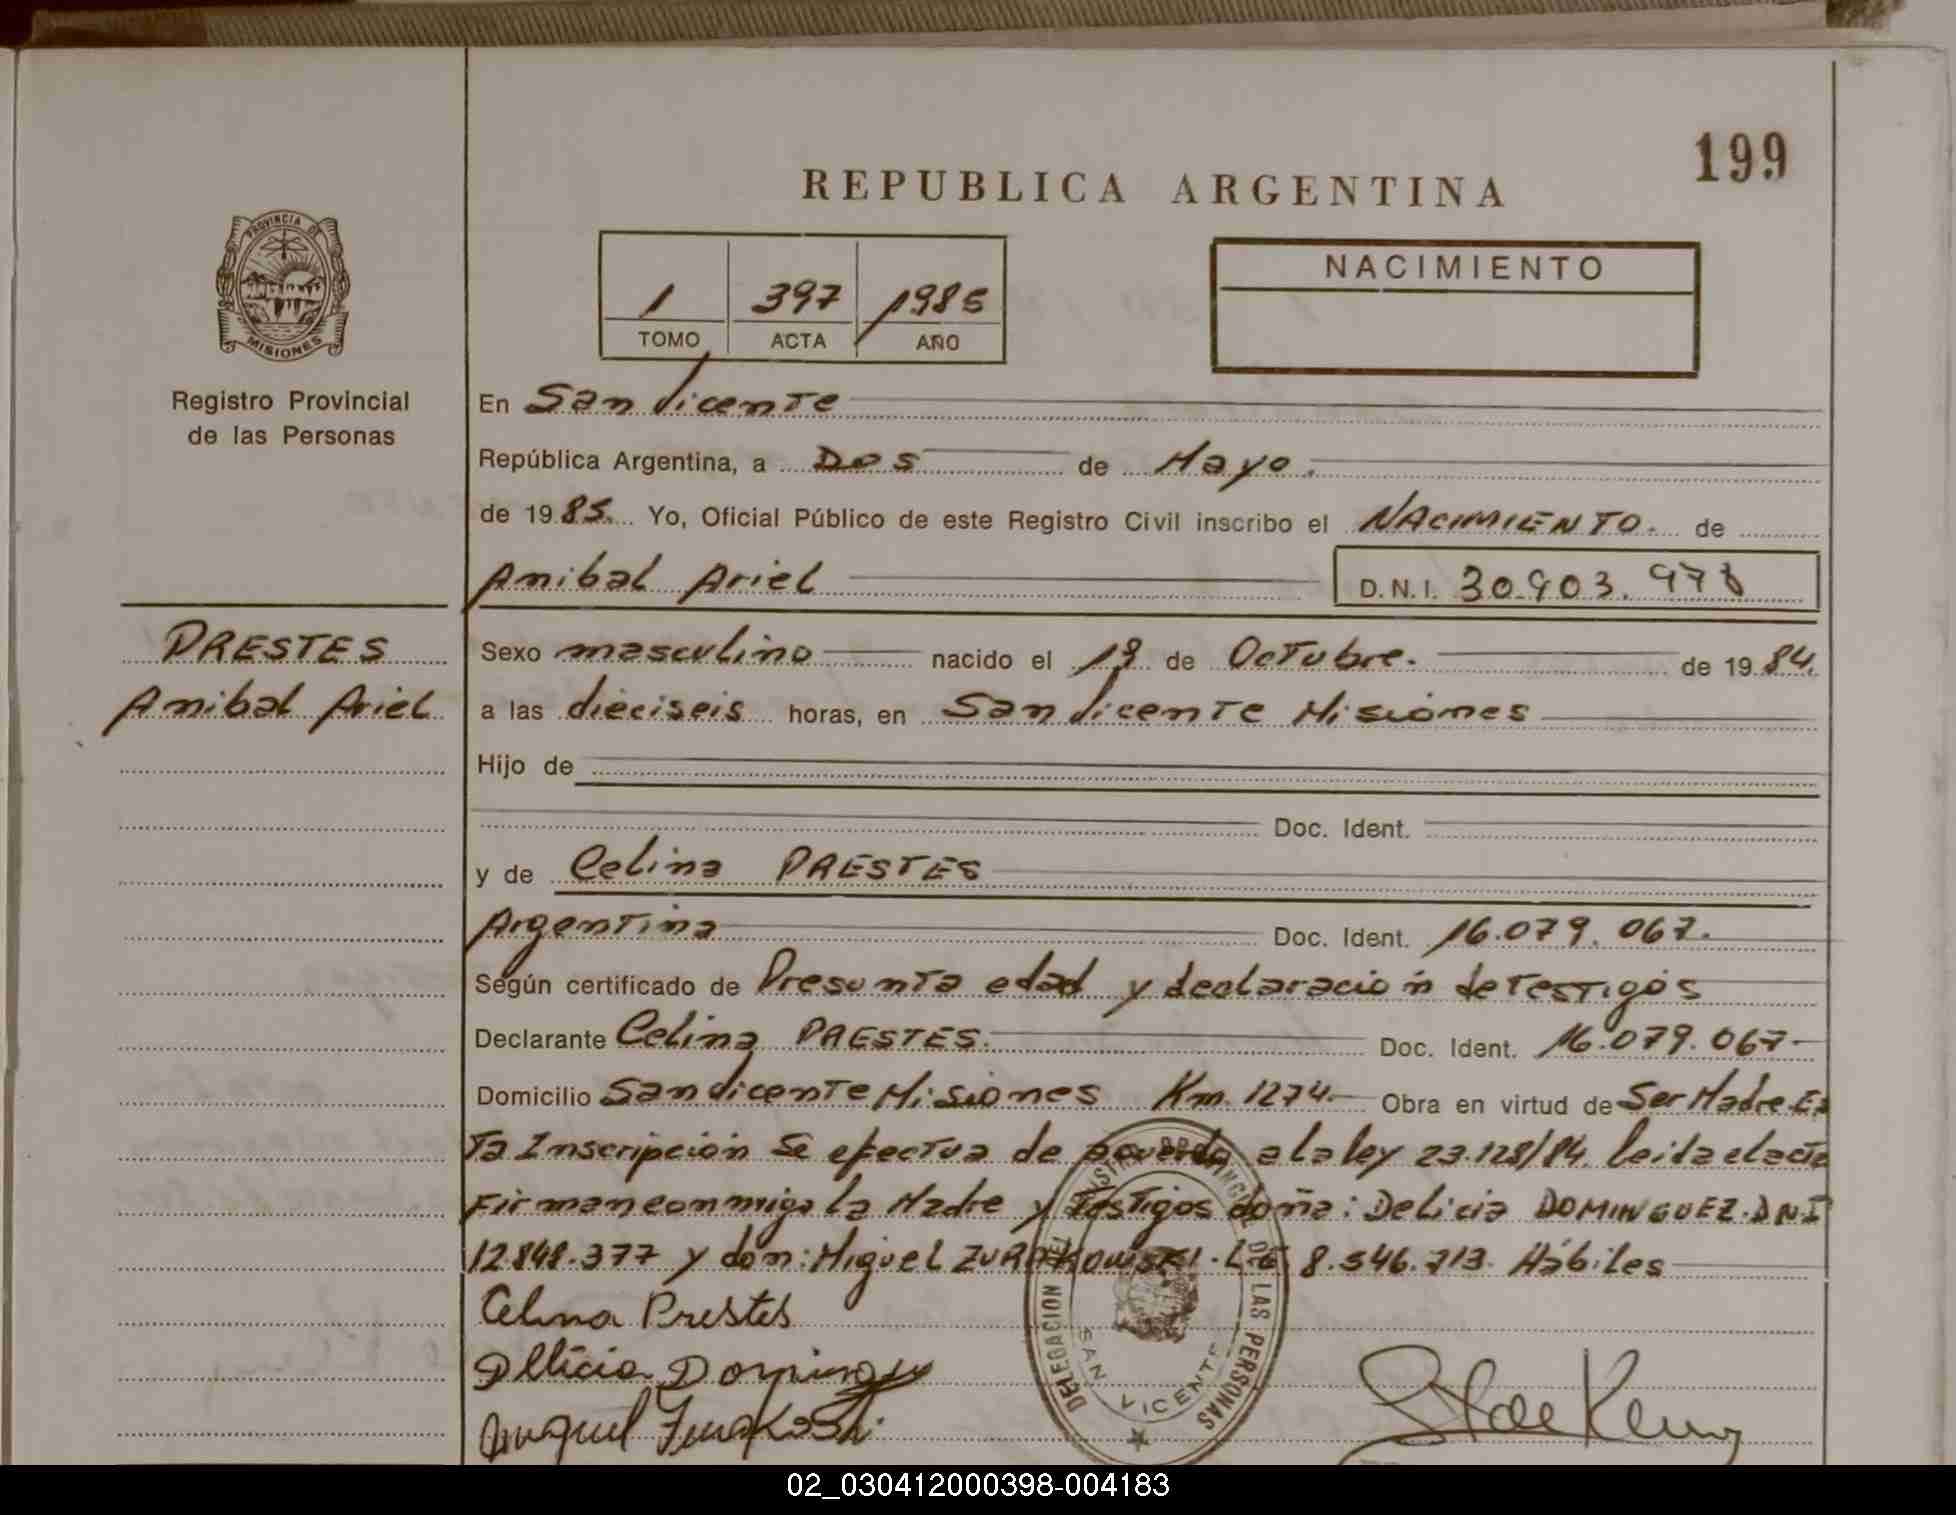 199
REPUBLICA ARGENTINA
PROVINCIA DE
MISIONES
Registro Provincial
de las Personas
1 397 1985
TOMO ACTA AÑO
NACIMIENTO
En San Vicente
República Argentina, a Dos de Mayo.
de 1985. Yo, Oficial Público de este Registro Civil inscribo el NACIMIENTO. de
Anibal Ariel D.N.I. 30.903.978
PRESTES
Anibal Ariel
Sexo masculino nacido el 19 de Octubre. de 1984.
a las dieciseis horas, en San Vicente Misiones
Hijo de
Doc. Ident.
y de Celina PRESTES
Argentina Doc. Ident. 16.079.067.
Según certificado de Presunta edad y declaración de Testigos
Declarante Celina PRESTES. Doc. Ident. 16.079.067-
Domicilio San Vicente Misiones Km. 1274- Obra en virtud de Ser Madre Es
Ta Inscripción Se efectua de acuerdo a la ley 23.128/84. leida el acta
Firman conmigo la Madre y Testigos doña: Delicia DOMINGUEZ. DNI
12.848.377 y don: Miguel ZURAKOWSKI. L.E. 8.546.713. Hábiles
Celina Prestes
Dellicia Dominguez
DELEGACION DEL REGISTRO PROVINCIAL DE LAS PERSONAS
SAN VICENTE
02_030412000398-004183